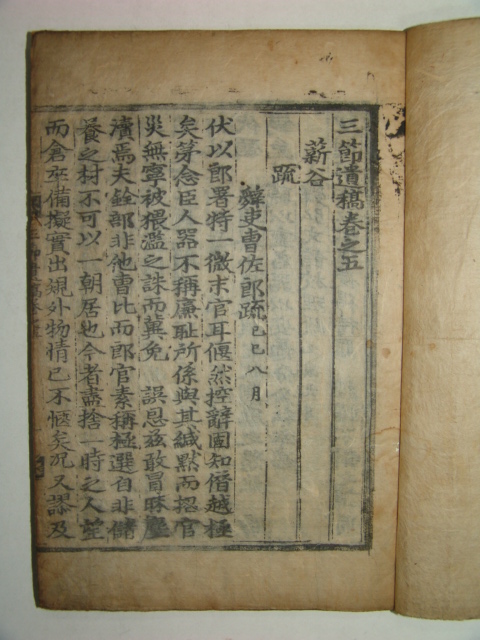 三節遺稿卷之五
薪谷
疏
辭吏曹佐郎疏 己巳八月
伏以郎署特一微末官耳偃然控辭固知僭越極
矣第念臣人器不稱廉恥所係與其緘默而招官
災無寧被猥濫之誅而冀免 誤恩玆敢冒昧塵
瀆焉夫銓部非他曹比而郎官素稱極選自非儲
養之材不可以一朝居也今者盡捨一時之人
而倉卒備擬實出規外物情已不愜矣況又謬及